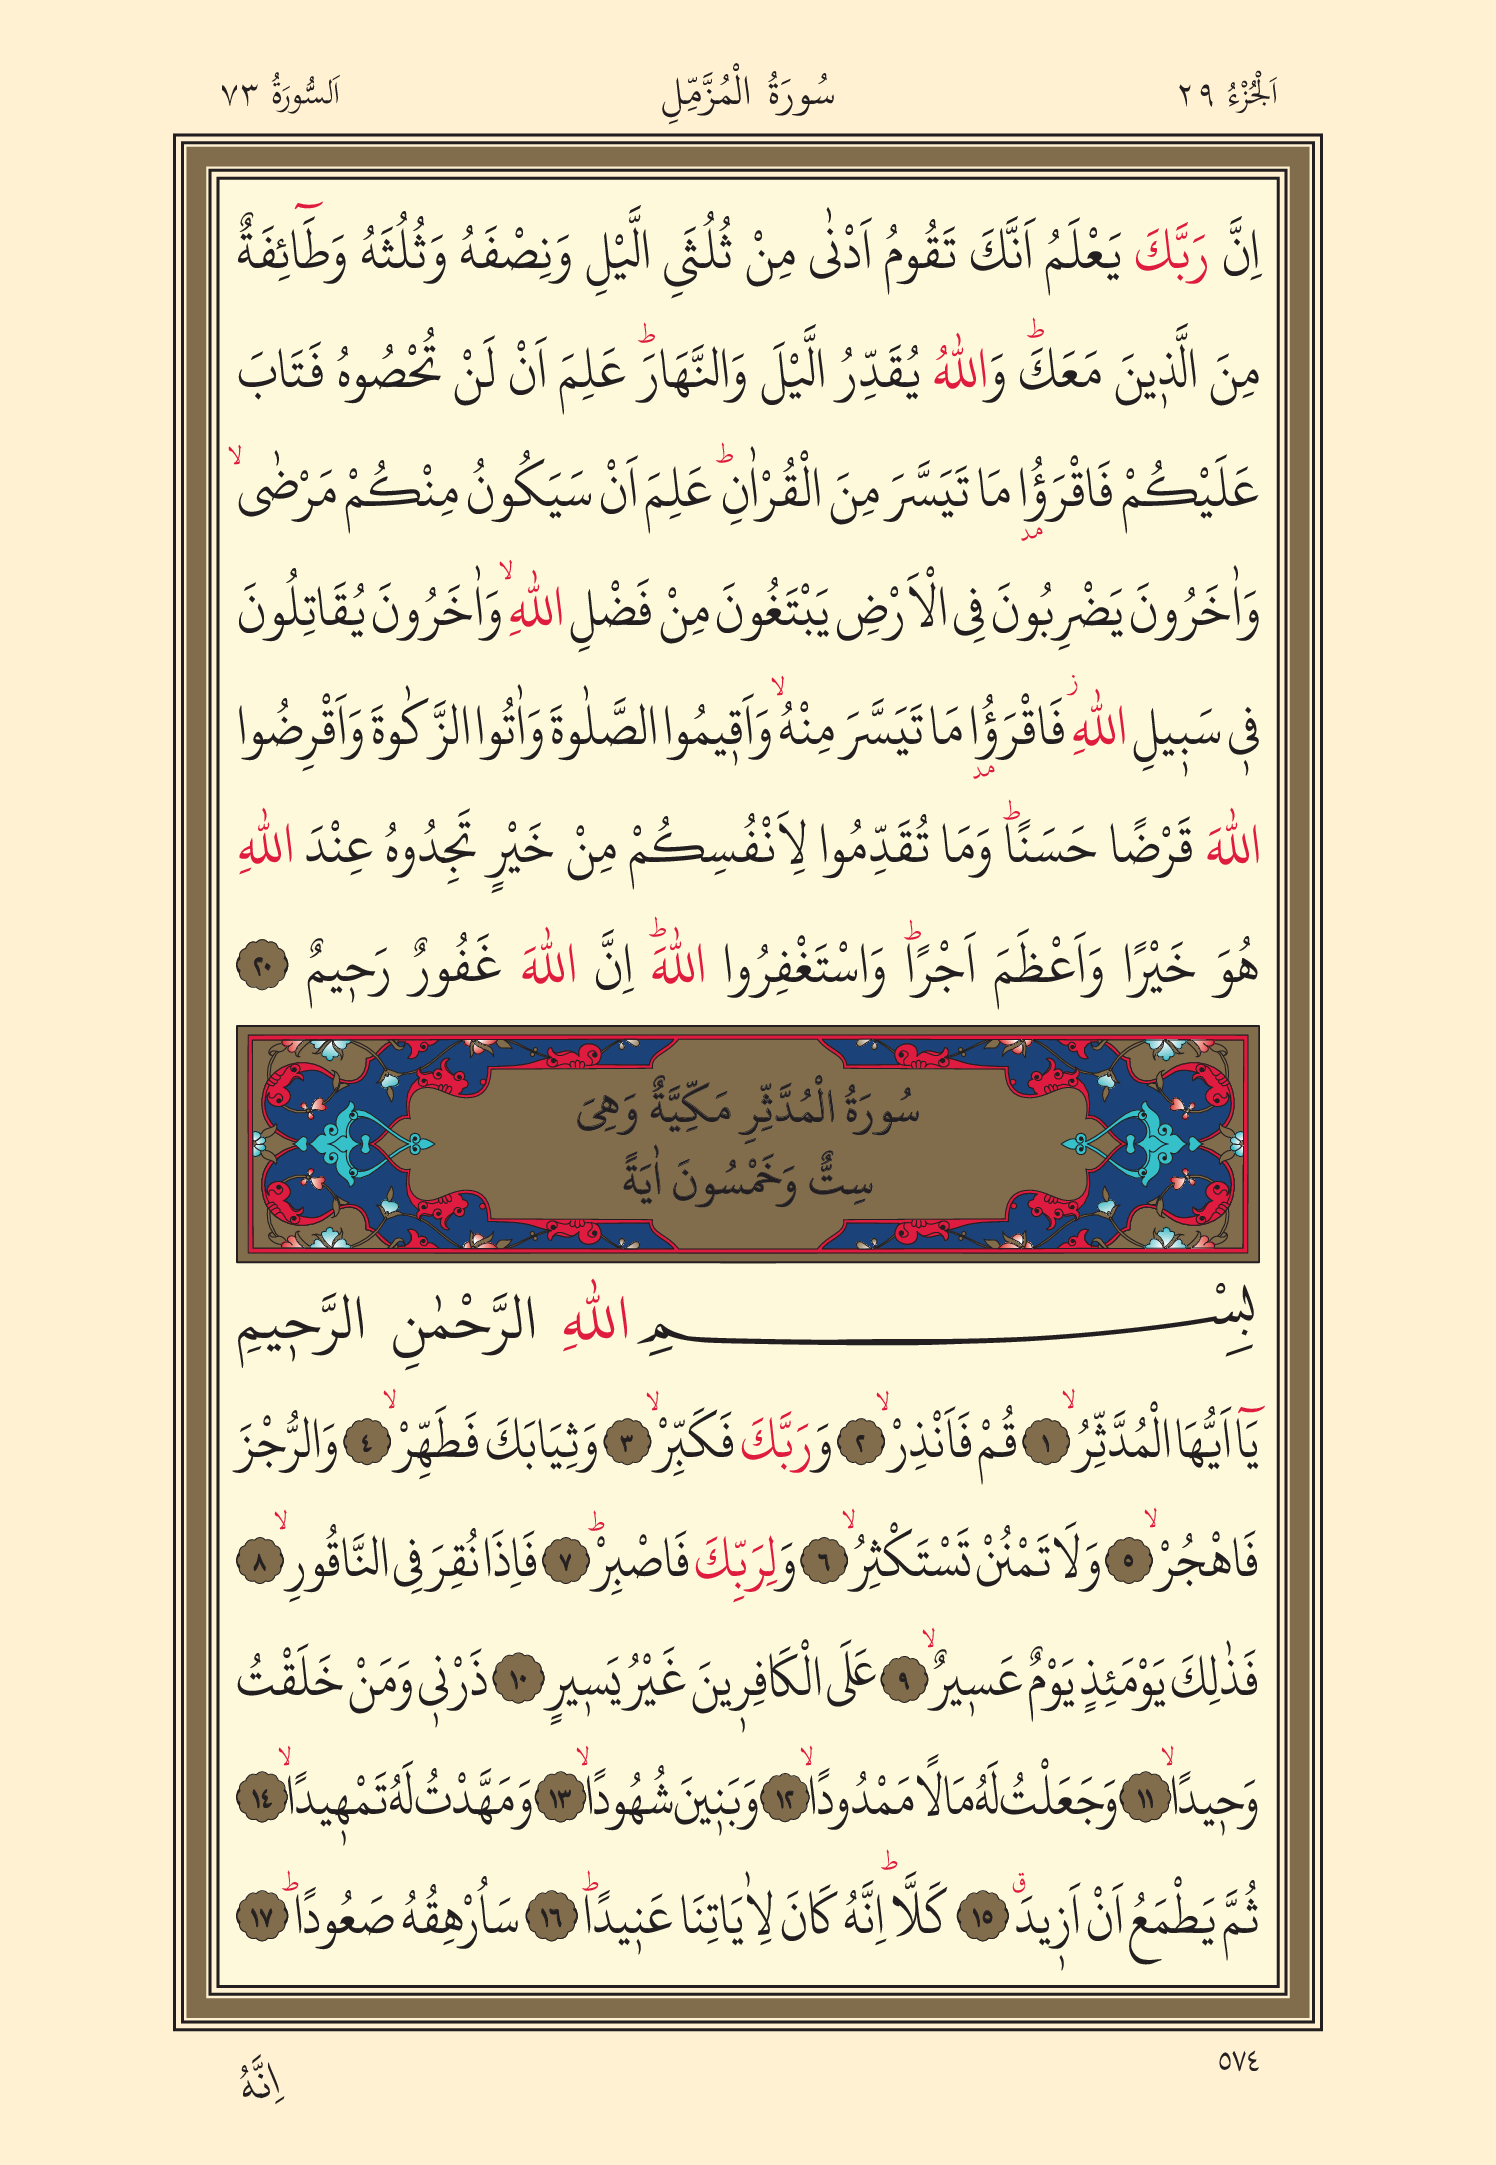 اَلْجُزْءُ ٢٩ سُورَةُ الْمُزَّمِّلِ اَلسُّورَةُ ٧٣
اِنَّ رَبَّكَ يَعْلَمُ اَنَّكَ تَقُومُ اَدْنٰى مِنْ ثُلُثَيِ الَّيْلِ وَنِصْفَهُ وَثُلُثَهُ وَطَٓائِفَةٌ
مِنَ الَّذ۪ينَ مَعَكَۜ وَاللّٰهُ يُقَدِّرُ الَّيْلَ وَالنَّهَارَۜ عَلِمَ اَنْ لَنْ تُحْصُوهُ فَتَابَ
عَلَيْكُمْ فَاقْرَؤُ۫ا مَا تَيَسَّرَ مِنَ الْقُرْاٰنِۜ عَلِمَ اَنْ سَيَكُونُ مِنْكُمْ مَرْضٰىۙ
وَاٰخَرُونَ يَضْرِبُونَ فِي الْاَرْضِ يَبْتَغُونَ مِنْ فَضْلِ اللّٰهِۙ وَاٰخَرُونَ يُقَاتِلُونَ
ف۪ي سَب۪يلِ اللّٰهِۘ فَاقْرَؤُ۫ا مَا تَيَسَّرَ مِنْهُۙ وَاَق۪يمُوا الصَّلٰوةَ وَاٰتُوا الزَّكٰوةَ وَاَقْرِضُوا
اللّٰهَ قَرْضًا حَسَنًاۜ وَمَا تُقَدِّمُوا لِاَنْفُسِكُمْ مِنْ خَيْرٍ تَجِدُوهُ عِنْدَ اللّٰهِ
هُوَ خَيْرًا وَاَعْظَمَ اَجْرًاۜ وَاسْتَغْفِرُوا اللّٰهَۜ اِنَّ اللّٰهَ غَفُورٌ رَح۪يمٌ ٢٠
سُورَةُ الْمُدَّثِّرِ مَكِّيَّةٌ وَهِيَ
سِتٌّ وَخَمْسُونَ اٰيَةً
بِسْمِ اللّٰهِ الرَّحْمٰنِ الرَّح۪يمِ
يَٓا اَيُّهَا الْمُدَّثِّرُۙ ١ قُمْ فَاَنْذِرْۙ ٢ وَرَبَّكَ فَكَبِّرْۙ ٣ وَثِيَابَكَ فَطَهِّرْۙ ٤ وَالرُّجْزَ
فَاهْجُرْۙ ٥ وَلَا تَمْنُنْ تَسْتَكْثِرُۙ ٦ وَلِرَبِّكَ فَاصْبِرْۜ ٧ فَاِذَا نُقِرَ فِي النَّاقُورِۙ ٨
فَذٰلِكَ يَوْمَئِذٍ يَوْمٌ عَس۪يرٌۙ ٩ عَلَى الْكَافِر۪ينَ غَيْرُ يَس۪يرٍ ١٠ ذَرْن۪ي وَمَنْ خَلَقْتُ
وَح۪يدًاۙ ١١ وَجَعَلْتُ لَهُ مَالًا مَمْدُودًاۙ ١٢ وَبَن۪ينَ شُهُودًاۙ ١٣ وَمَهَّدْتُ لَهُ تَمْه۪يدًاۙ ١٤
ثُمَّ يَطْمَعُ اَنْ اَز۪يدَۗ ١٥ كَلَّاۜ اِنَّهُ كَانَ لِاٰيَاتِنَا عَن۪يدًاۜ ١٦ سَاُرْهِقُهُ صَعُودًاۜ ١٧
٥٧٤
اِنَّهُ